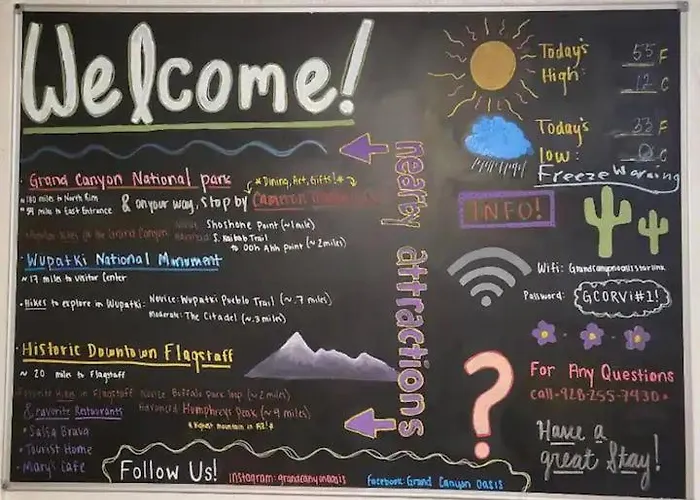 Welcome!
Today's High: 55 F
12 C
Today's Low: 33 F
0 C
Freeze Warning
nearby attractions
Grand Canyon National park
~ 180 miles to North Rim
~ 59 miles to East Entrance
* Dining, Art, Gifts! *
& on your way, stop by Cameron
Shoshone Point (~1 mile)
S. Kaibab Trail
to Ooh Ahh point (~2 miles)
Wupatki National Monument
~ 17 miles to visitor center
Hikes to explore in Wupatki: Novice: Wupatki Pueblo Trail (~.7 miles)
Moderate: The Citadel (~.3 miles)
Historic Downtown Flagstaff
~ 20 miles to Flagstaff
Favorite Hikes in Flagstaff Novice Buffalo park loop (~2 miles)
Advanced Humphreys Peak (~9 miles)
Highest mountain in AZ!
& Favorite Restaurants
• Salsa Brava
• Tourist Home
• Mary's Cafe
INFO!
Wifi: Grandcanyonoasisstarlink
Password: GCORVi#1!
?
For Any Questions
call-928-255-7430
Have a
great Stay!
Follow Us! instagram: grandcanyonoasis Facebook: Grand Canyon Oasis